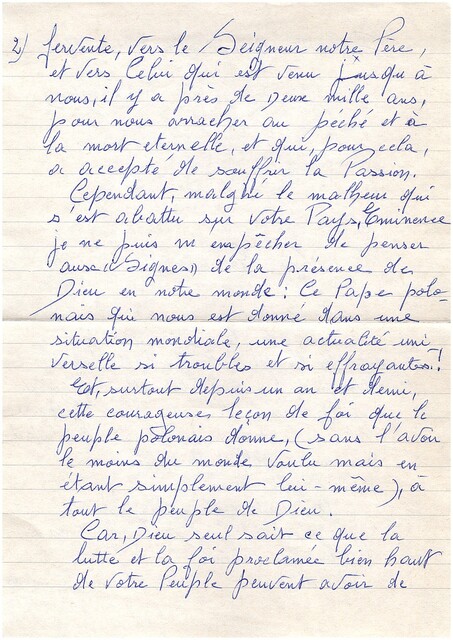 2) fervente, vers le Seigneur notre Père,
et vers Celui qui est venu jusqu'à
nous, il y a près de Deux mille ans,
pour nous arracher au péché et à
la mort eternelle, et qui, pour cela,
a accepté de souffrir la Passion.
Cependant, malgré le malheur qui
s'est abattu sur Votre Pays, Eminence
je ne puis m'empêcher de penser
aux « Signes » de la présence de
Dieu en notre monde : Ce Pape polo-
nais qui nous est donné dans une
situation mondiale, une actualité uni-
verselle si troubles et si effrayantes !
Et, surtout depuis un an et demi,
cette courageuse leçon de foi que le
peuple polonais donne, (sans l'avoir
le moins du monde voulu mais en
étant simplement lui-même), à
tout le peuple de Dieu.
Car, Dieu seul sait ce que la
lutte et la foi proclamée bien haut
de votre Peuple peuvent avoir de